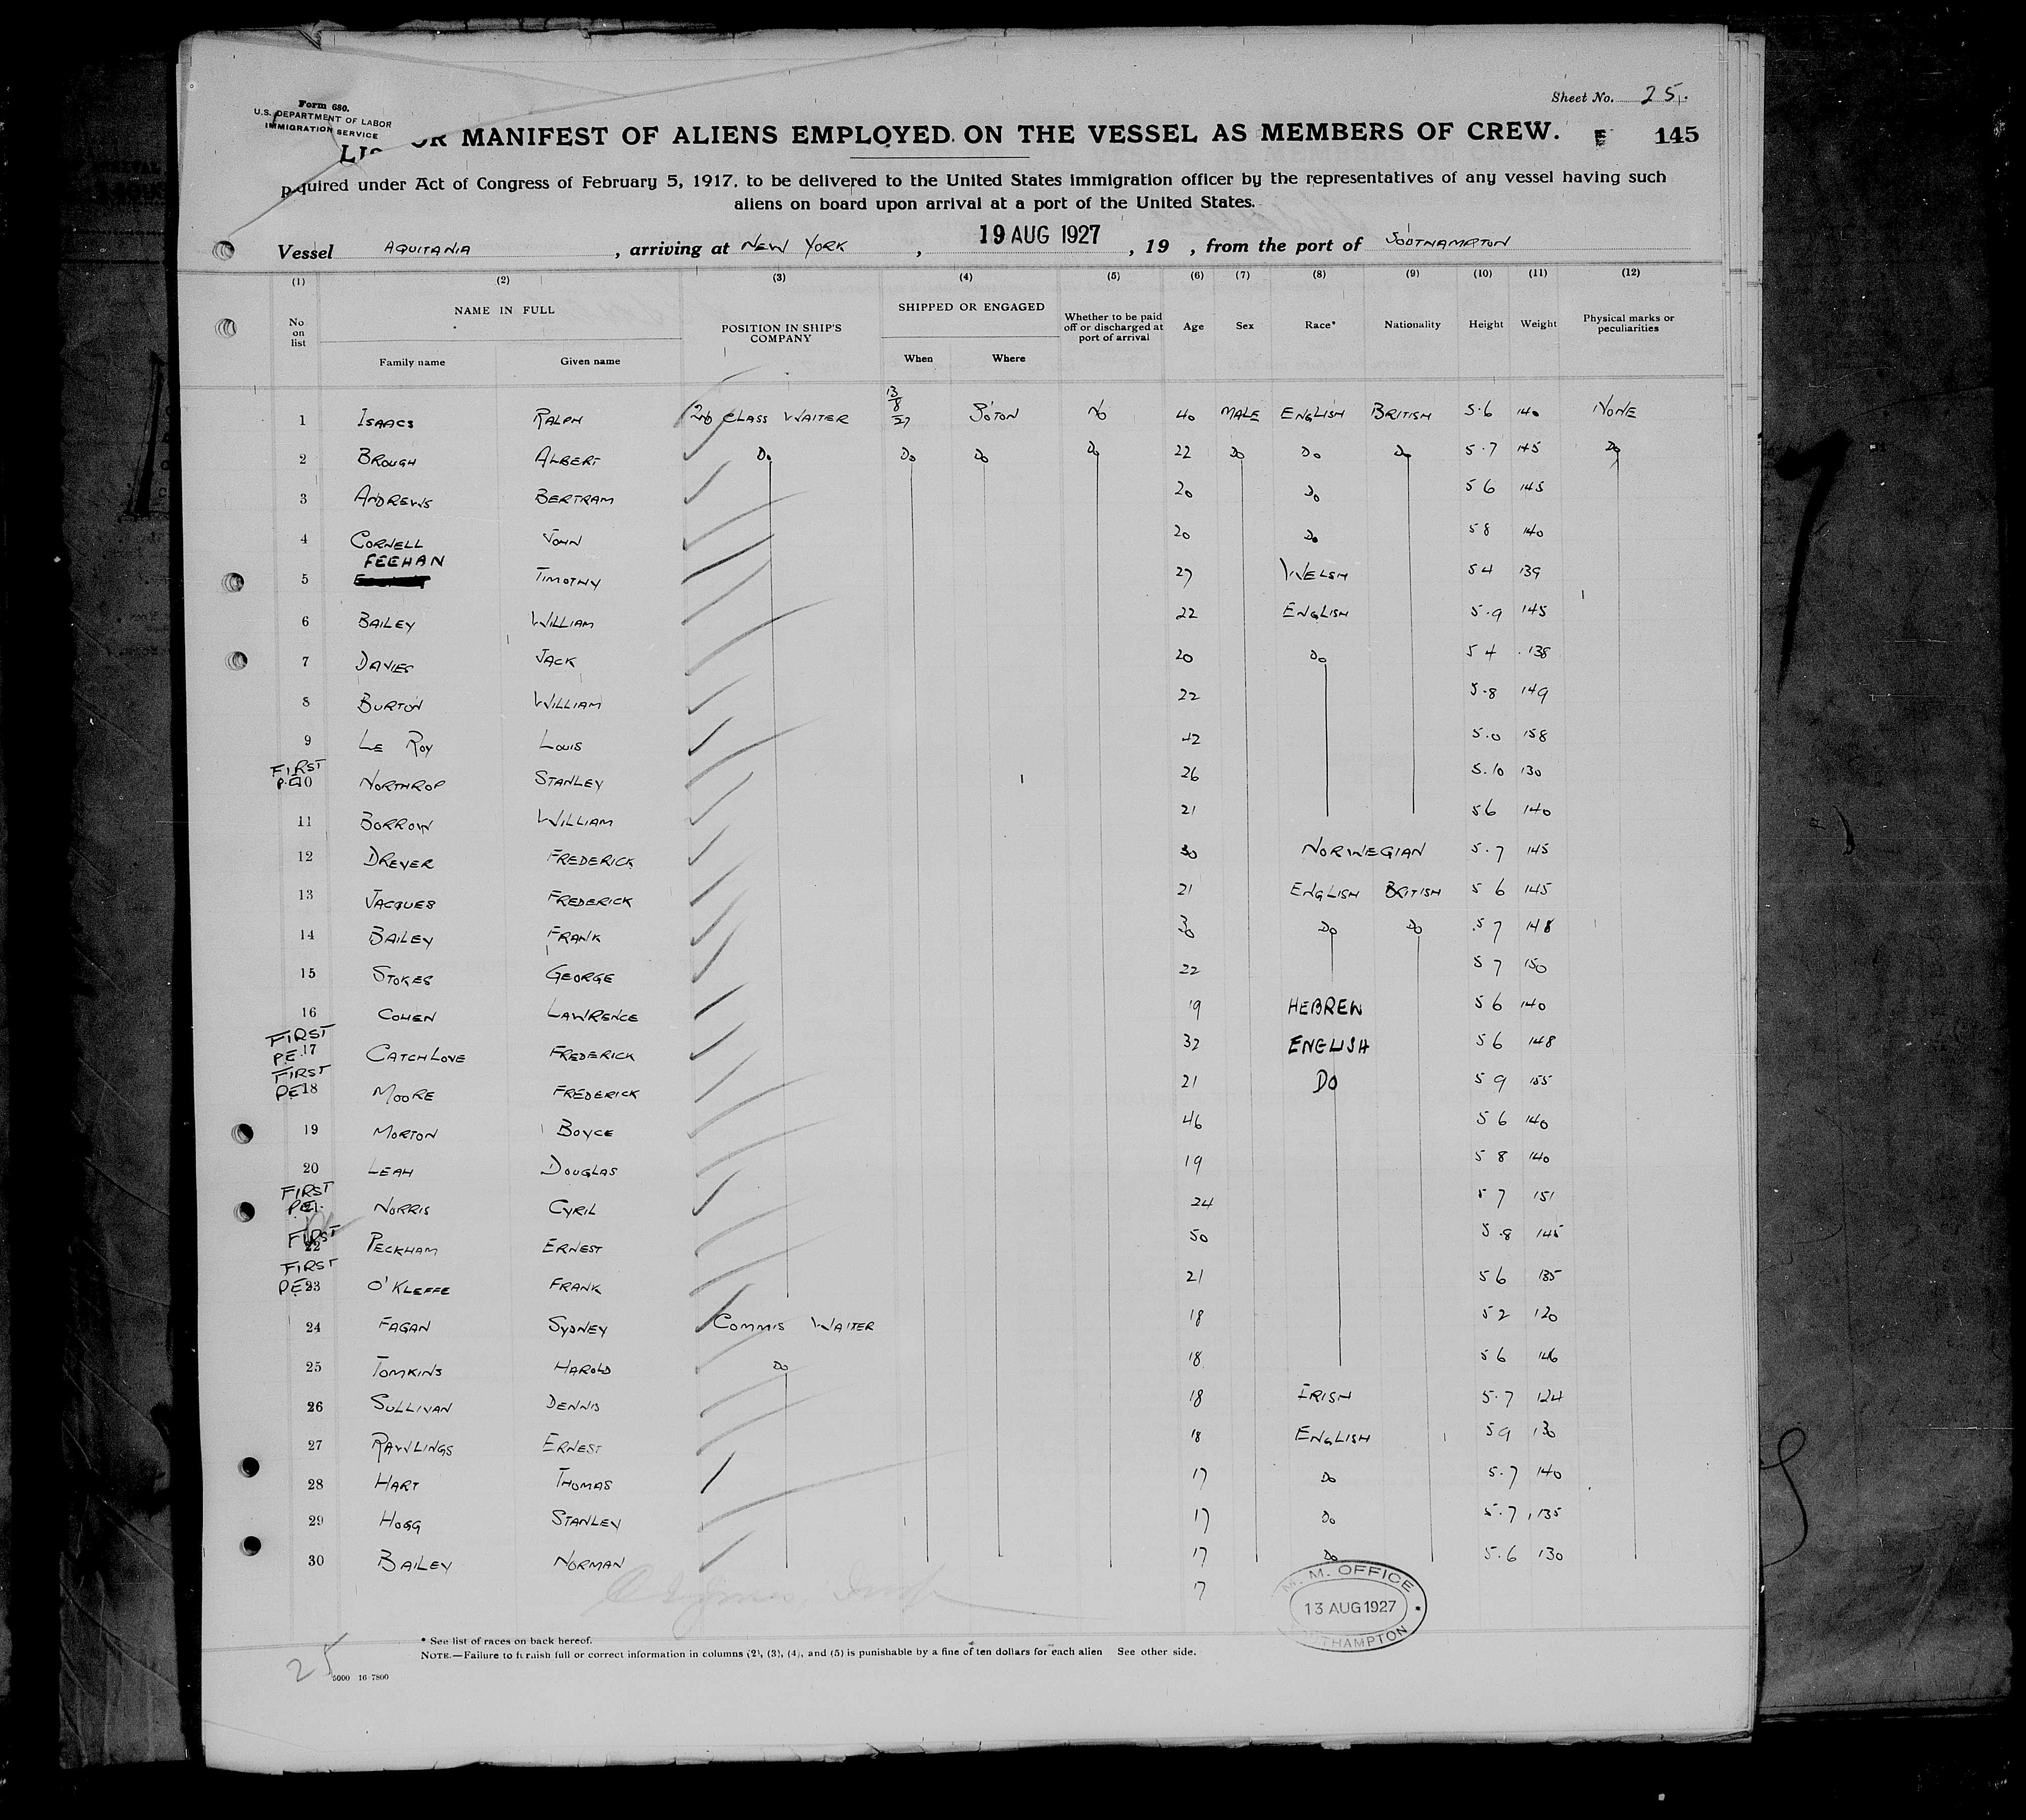 Sheet No. 25.
Form 680.
U.S. DEPARTMENT OF LABOR
IMMIGRATION SERVICE
OR MANIFEST OF ALIENS EMPLOYED ON THE VESSEL AS MEMBERS OF CREW. E 145
quired under Act of Congress of February 5, 1917, to be delivered to the United States immigration officer by the representatives of any vessel having such
aliens on board upon arrival at a port of the United States.
Vessel AQUITANIA, arriving at NEW YORK, 19 AUG 1927, 19 , from the port of SOUTHAMPTON
(1) (2) (3) (4) (5) (6) (7) (8) (9) (10) (11) (12)
No on list NAME IN FULL POSITION IN SHIP'S COMPANY SHIPPED OR ENGAGED Whether to be paid off or discharged at port of arrival Age Sex Race* Nationality Height Weight Physical marks or peculiarities
Family name Given name When Where
1 ISAACS RALPH 2ND CLASS WAITER 13/8/27 S'OTON NO 40 MALE ENGLISH BRITISH 5.6 140 NONE
2 BROUGH ALBERT DO DO DO DO 22 DO DO DO 5.7 145 DO
3 ANDREWS BERTRAM 20 DO 5 6 145
4 CORNELL JOHN 20 DO 5 8 140
FEEHAN
5 TIMOTHY 27 WELSH 5 4 139
6 BAILEY WILLIAM 22 ENGLISH 5.9 145
7 DAVIES JACK 20 DO 5 4 138
8 BURTON WILLIAM 22 5.8 149
9 LE ROY LOUIS 42 5.0 158
FIRST
P.E. 10 NORTHROP STANLEY 26 5.10 130
11 BORROW WILLIAM 21 5 6 140
12 DREYER FREDERICK 30 NORWEGIAN 5.7 145
13 JACQUES FREDERICK 21 ENGLISH BRITISH 5 6 145
14 BAILEY FRANK 30 DO DO 5 7 148
15 STOKES GEORGE 22 5 7 150
16 COHEN LAWRENCE 19 HEBREW 5 6 140
FIRST
P.E. 17 CATCHLOVE FREDERICK 32 ENGLISH 5 6 148
FIRST
P.E. 18 MOORE FREDERICK 21 DO 5 9 155
19 MORTON BOYCE 46 5 6 140
20 LEAH DOUGLAS 19 5 8 140
FIRST
P.E. 21 NORRIS CYRIL 24 5 7 151
FIRST
22 PECKHAM ERNEST 50 5.8 145
FIRST
P.E. 23 O'KLEFFE FRANK 21 5 6 135
24 FAGAN SYDNEY COMMIS WAITER 18 5 2 120
25 TOMKINS HAROLD DO 18 5 6 146
26 SULLIVAN DENNIS 18 IRISH 5.7 124
27 RAWLINGS ERNEST 18 ENGLISH 5 9 130
28 HART THOMAS 17 DO 5.7 140
29 HOGG STANLEY 17 DO 5.7 135
30 BAILEY NORMAN 17 DO 5.6 130
17
M. M. OFFICE
13 AUG 1927
THAMPTON
* See list of races on back hereof.
NOTE.—Failure to furnish full or correct information in columns (2), (3), (4), and (5) is punishable by a fine of ten dollars for each alien See other side.
25
5000 16 7800